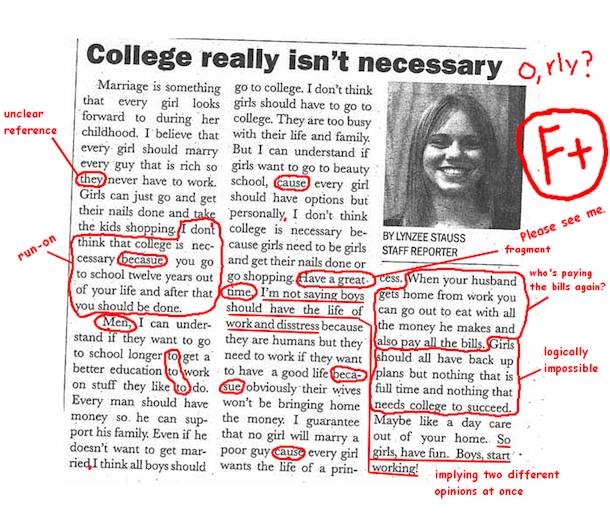 College really isn't necessary
o, rly?
F+
Please see me.
Marriage is something
that every girl looks
forward to during her
childhood. I believe that
every girl should marry
every guy that is rich so
they never have to work.
Girls can just go and get
their nails done and take
the kids shopping. I don't
think that college is nec-
cessary becasue you go
to school twelve years out
of your life and after that
you should be done.
Men, I can under-
stand if they want to go
to school longer to get a
better education to work
on stuff they like to do.
Every man should have
money so he can sup-
port his family. Even if he
doesn't want to get mar-
ried, I think all boys should
go to college. I don't think
girls should have to go to
college. They are too busy
with their life and family.
But I can understand if
girls want to go to beauty
school, cause every girl
should have options but
personally, I don't think
college is necessary be-
cause girls need to be girls
and get their nails done or
go shopping. Have a great
time. I'm not saying boys
should have the life of
work and disstress because
they are humans but they
need to work if they want
to have a good life beca-
sue obviously their wives
won't be bringing home
the money. I guarantee
that no girl will marry a
poor guy cause every girl
wants the life of a prin-
BY LYNZEE STAUSS
STAFF REPORTER
cess. When your husband
gets home from work you
can go out to eat with all
the money he makes and
also pay all the bills. Girls
should all have back up
plans but nothing that is
full time and nothing that
needs college to succeed.
Maybe like a day care
out of your home. So
girls, have fun. Boys, start
working!
unclear
reference
run-on
fragment
who's paying
the bills again?
logically
impossible
implying two different
opinions at once